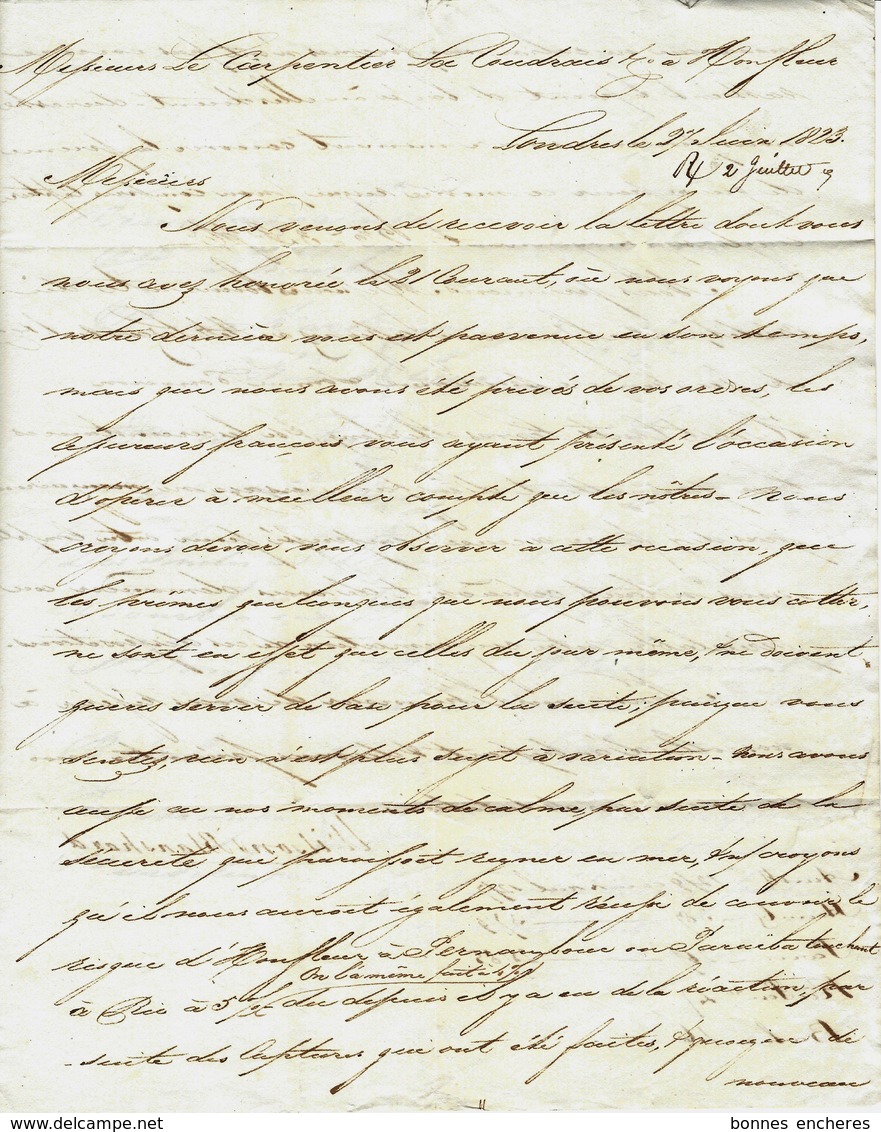 Messieurs Le Carpentier La Coudrais & Co à Honfleur
Londres le 27 Juin 1823.
R/ 2 Juillet
Messieurs
Nous venons de recevoir la lettre dont vous
nous avez honorée le 21 Courant, où nous voyons que
notre dernière vous est parvenue en son temps,
mais que nous avons été privés de vos ordres, les
assureurs françois vous ayant présenté l'occasion
d'opérer à meilleur compte que les nôtres - nous
croyons devoir vous observer à cette occasion, que
les primes quelconques que nous pouvons vous cotter,
ne sont en effet que celles du jour même, & ne doivent
guères servir de base pour la suite, puisque vous
sentez, rien n'est plus sujet à variation - nous avons
aussi eu nos moments de calme, par suite de la
sécurité que paroissoit regner en mer, & croyons
qu'il nous auroit également réussi de couvrir le
risque d'Honfleur à Pernambouc ou Paraïba touchant
on l'a même fait à
à Rio à 5 p% depuis il y a eu de la réaction, par
suite des Captures qui ont été faites, & quoique de
nouveau
bonnes encheres